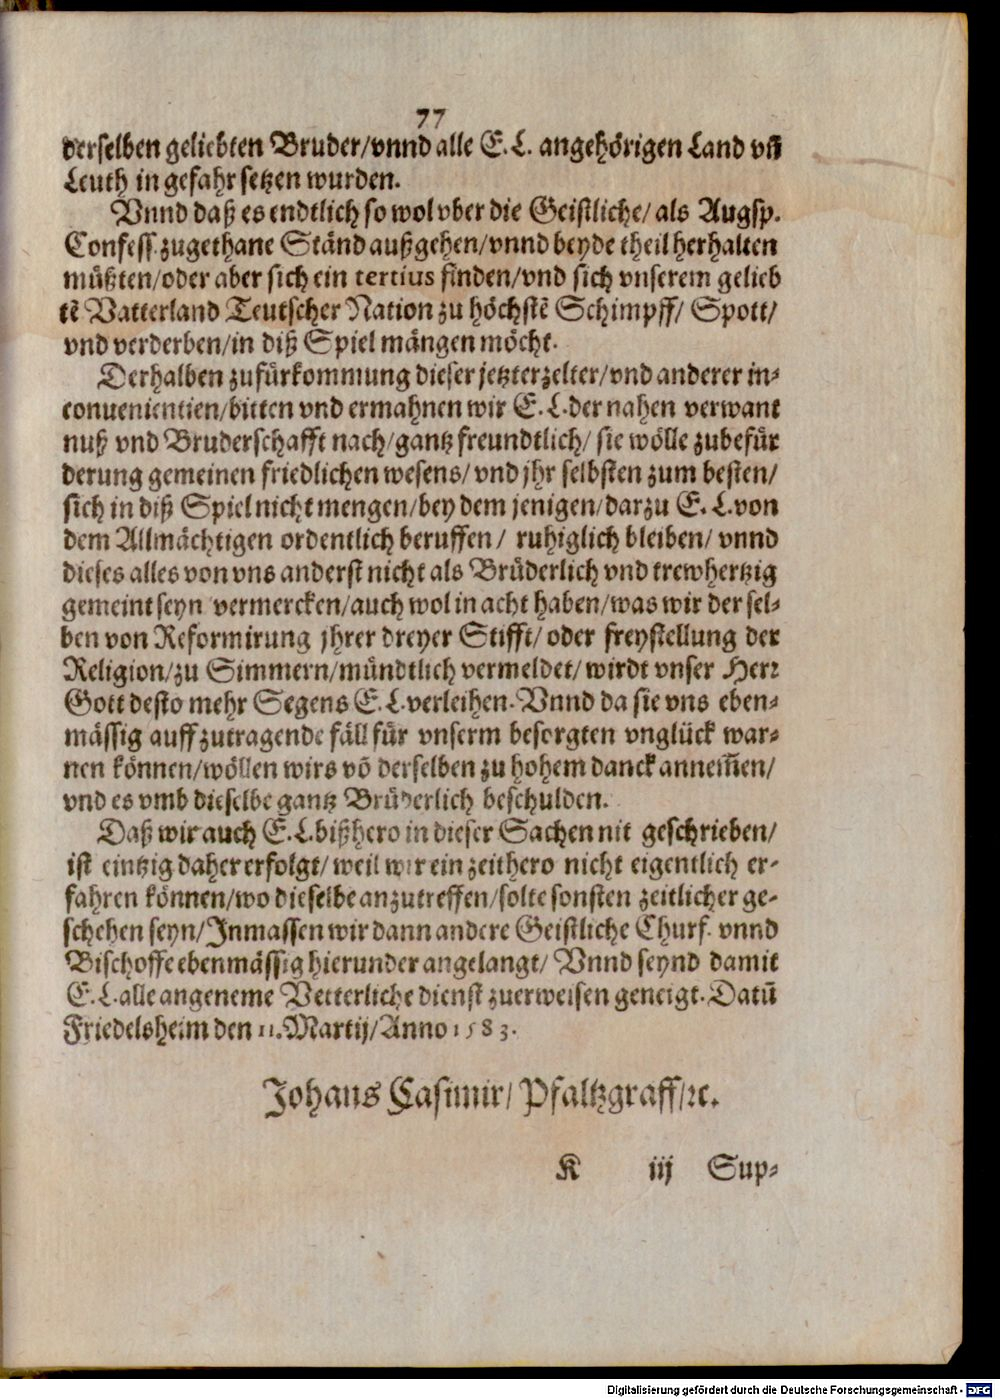 77
derselben geliebten Bruder/vnnd alle E. L. angehörigen Land vñ
Leuth in gefahr setzen wurden.
Vnnd daß es endtlich so wol vber die Geistliche/ als Augsp.
Confess. zugethane Ständ außgehen/vnnd beyde theil herhalten
müßten/oder aber sich ein tertius finden/vnd sich vnserem gelieb
tẽ Vatterland Teutscher Nation zu höchstẽ Schimpff/ Spott/
vnd verderben/in diß Spiel mängen möcht.
Derhalben zufürkommung dieser jetzterzelter/vnd anderer in-
conuenientien/bitten vnd ermahnen wir E. L. der nahen verwant
nuß vnd Bruderschafft nach/gantz freundtlich/ sie wölle zubefür
derung gemeinen friedlichen wesens/ vnd jhr selbsten zum besten/
sich in diß Spiel nicht mengen/bey dem jenigen/darzu E. L. von
dem Allmächtigen ordentlich beruffen/ ruhiglich bleiben/ vnnd
dieses alles von vns anderst nicht als Brüderlich vnd trewhertzig
gemeint seyn vermercken/auch wol in acht haben/was wir der sel-
ben von Reformirung jhrer dreyer Stifft/ oder freystellung der
Religion/zu Simmern/mündtlich vermeldet/ wirdt vnser Herr
Gott desto mehr Segens E. L. verleihen. Vnnd da sie vns eben-
mässig auff zutragende fäll für vnserm besorgten vnglück war-
nen können/wöllen wirs võ derselben zu hohem danck annem̃en/
vnd es vmb dieselbe gantz Brüderlich beschulden.
Daß wir auch E. L. bißhero in dieser Sachen nit geschrieben/
ist eintzig daher erfolgt/ weil wir ein zeithero nicht eigentlich er-
fahren können/wo dieselbe anzutreffen/solte sonsten zeitlicher ge-
schehen seyn/Inmassen wir dann andere Geistliche Churf. vnnd
Bischoffe ebenmässig hierunder angelangt/ Vnnd seynd damit
E. L. alle angeneme Vetterliche dienst zuerweisen geneigt. Datũ
Friedelsheim den 11. Martij/Anno 1583.
Johans Casimir/ Pfaltzgraff/ꝛc.
K iij Sup-
Digitalisierung gefördert durch die Deutsche Forschungsgemeinschaft - DFG